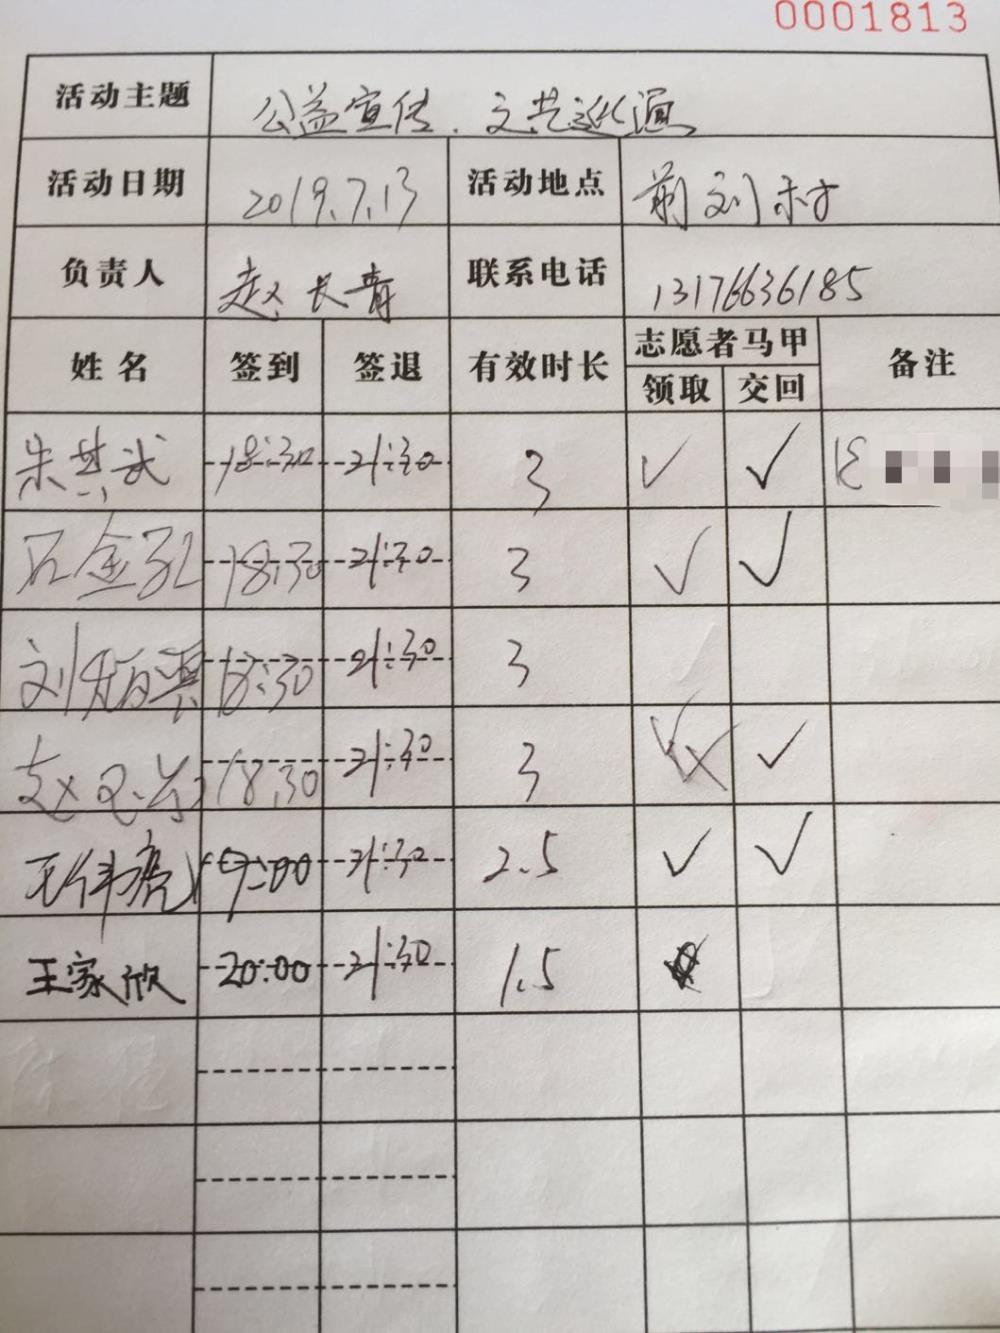 0001813
活动主题 公益宣传.文艺巡演
活动日期 2019.7.13 活动地点 前刘村
负责人 赵长青 联系电话 13176636185
姓名 签到 签退 有效时长 志愿者马甲 备注
领取 交回
朱其武 18:30 21:30 3 ✓ ✓
石金孔 18:30 21:30 3 ✓ ✓
刘 18:30 21:30 3
赵 18:30 21:30 3 ✓
王伟亮 19:00 21:30 2.5 ✓ ✓
王家欣 20:00 21:30 1.5